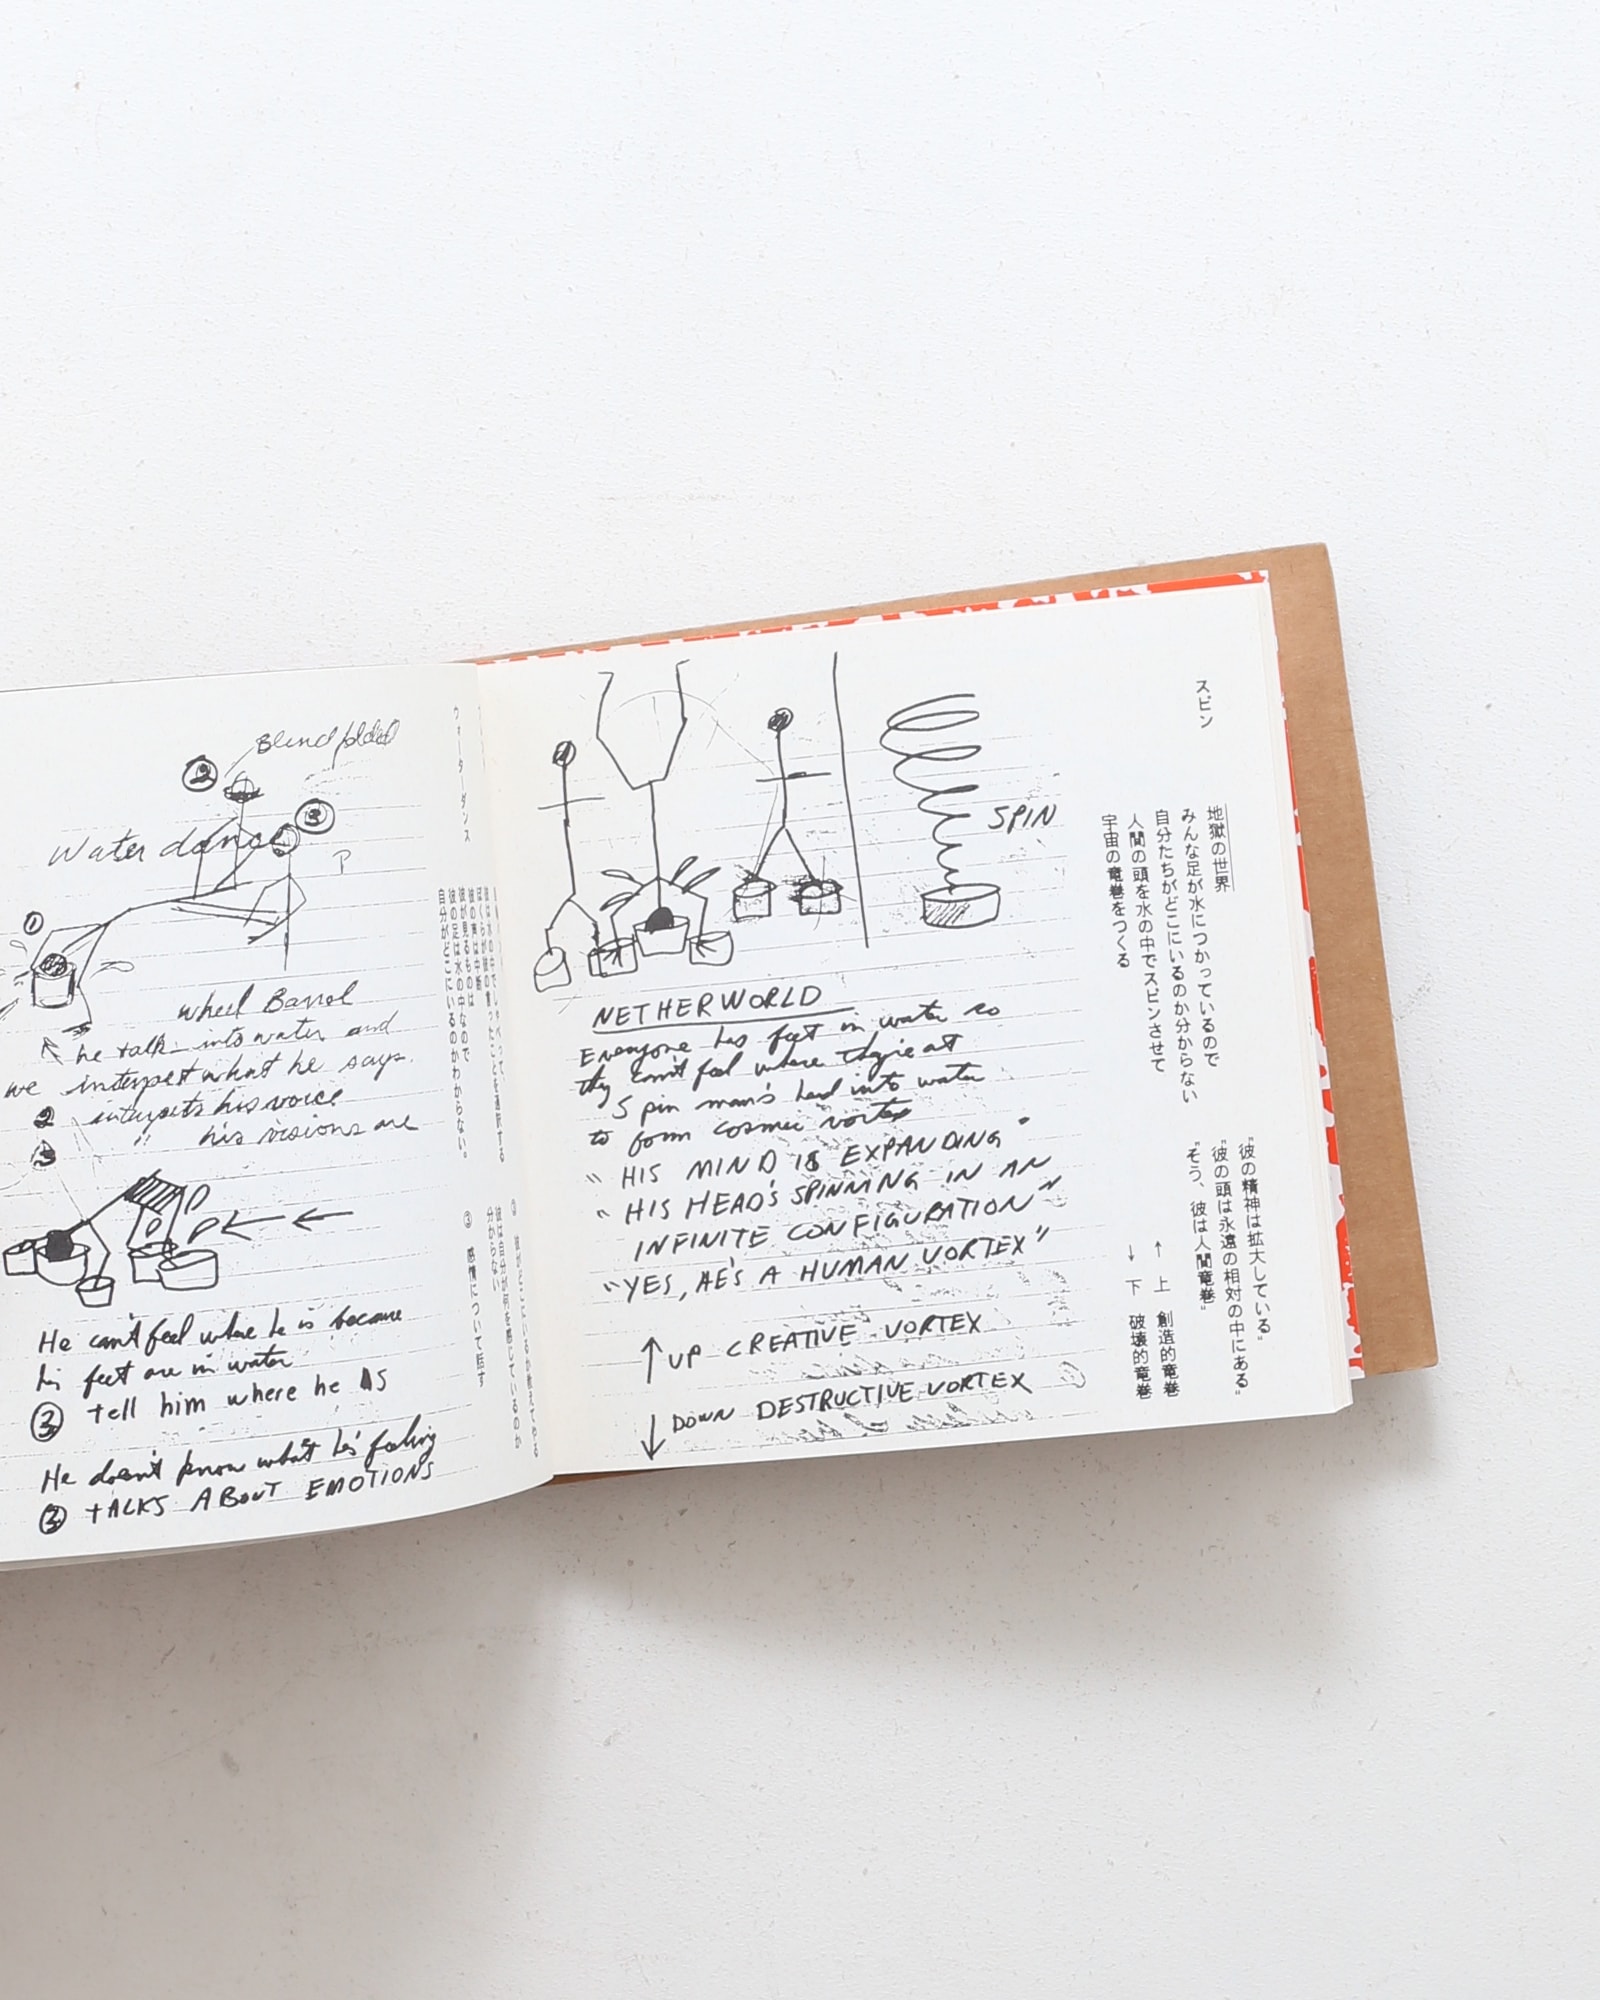 Blindfolded
2
3
Water dance
P
1
wheel Barrol
he talk into water and
we interpret what he says.
2 interprets his voice
3 " his visions are
He can't feel where he is because
his feet are in water
3 tell him where he is
He doesn't know what he's feeling
3 tALKS ABOUT EMOTIONS
ウォーターダンス
彼の声は中断
彼が見るものは
彼の足は水の中なので
自分がどこにいるのかわからない。
彼は自分が何を感じているのか
分からない
③ 感情について話す
SPIN
NETHERWORLD
Everyone has feet in water so
they can't feel where they're at
Spin man's head into water
to form cosmic vortex
"HIS MIND IS EXPANDING"
"HIS HEAD'S SPINNING IN AN
INFINITE CONFIGURATION"
"YES, HE'S A HUMAN VORTEX"
↑ UP CREATIVE VORTEX
↓ DOWN DESTRUCTIVE VORTEX
スピン
地獄の世界
みんな足が水につかっているので
自分たちがどこにいるのか分からない
人間の頭を水の中でスピンさせて
宇宙の竜巻をつくる
"彼の精神は拡大している"
"彼の頭は永遠の相対の中にある"
"そう、彼は人間竜巻"
↑ 上 創造的竜巻
↓ 下 破壊的竜巻